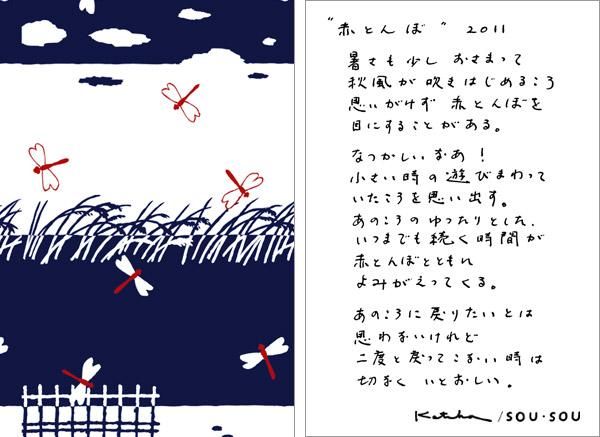 "赤とんぼ" 2011
暑さも少し おさまって
秋風が 吹きはじめるころ
思いがけず 赤とんぼを
目にすることがある。
なつかしいなあ！
小さい時の遊びまわって
いたころを思い出す。
あのころのゆったりとした、
いつまでも続く時間が
赤とんぼとともに
よみがえってくる。
あのころに戻りたいとは
思わないけれど
二度と戻ってこない時は
切なく いとおしい。
Katsuji /SOU・SOU